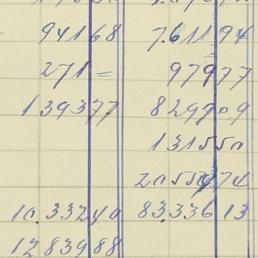 941 68 7.611 94
271 = 979 77
1 393 77 829 09
1 315 50
10.332 40 83.336 13
12 839 88